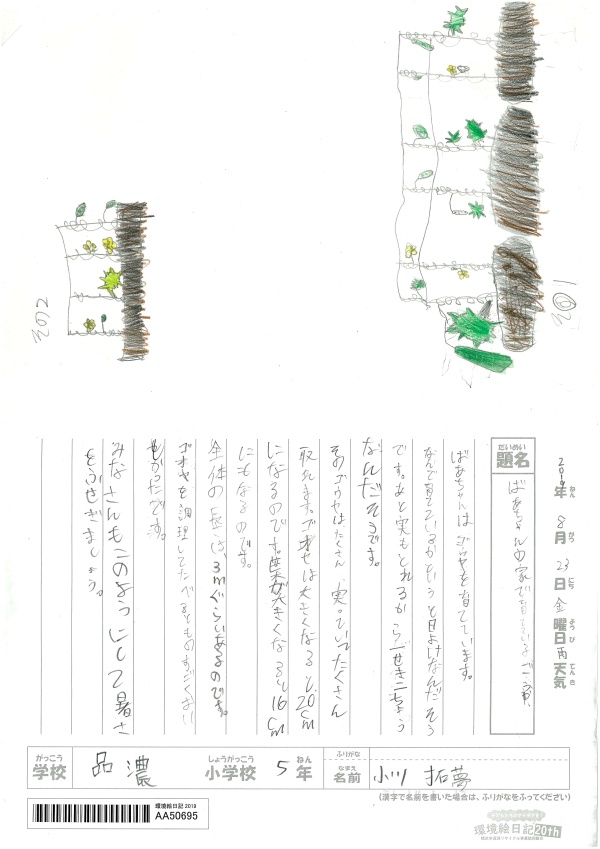 その1
その2
2019年 8月 23日 金曜日 雨 天気
ねん がつ にち ようび てんき
だいめい
題名
ばあちゃんの家で育ている
ばあちゃんは ゴウヤを育てています。
なんで育てているかというと日よけなんだそう
です。あと実もとれるから一せき二ちょう
なんだそうです。
そのゴウヤはたくさん 実っていてたくさん
取れます。ゴオヤは大きくなると20cm
になるのです。葉が大きくなると16cm
にもなるのです。
全体の長さは、3mぐらいあるのです。
ゴオヤを調理してたべるとものすごくおい
しかったです。
みなさんもこのようにして暑さ
をふせぎましょう。
がっこう
学校
品濃
しょうがっこう
小学校
5
ねん
年
ふりがな
なまえ
名前
小川 拓夢
(漢字で名前を書いた場合は、ふりがなをふってください)
環境絵日記 2019
AA50695
環境絵日記 20th